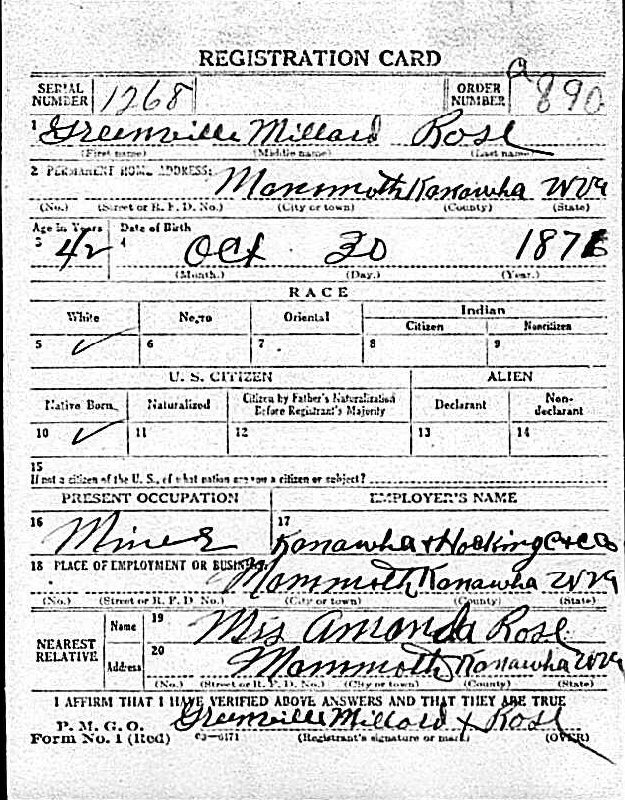 REGISTRATION CARD
SERIAL NUMBER 1268 ORDER NUMBER a 890
1 Greenville Millard Rose
(First name) (Middle name) (Last name)
2 PERMANENT HOME ADDRESS: Mammoth Kanawha W Va
(No.) (Street or R. F. D. No.) (City or town) (County) (State)
Age in Years Date of Birth
3 42 4 Oct 30 1876
(Month.) (Day.) (Year.)
RACE
White Negro Oriental Indian
Citizen Noncitizen
5 ✓ 6 7 8 9
U. S. CITIZEN ALIEN
Native Born Naturalized Citizen by Father's Naturalization Before Registrant's Majority Declarant Non-declarant
10 ✓ 11 12 13 14
15
If not a citizen of the U. S., of what nation are you a citizen or subject?
PRESENT OCCUPATION EMPLOYER'S NAME
16 Miner 17 Kanawha & Hocking C & C Co
18 PLACE OF EMPLOYMENT OR BUSINESS: Mammoth Kanawha W Va
(No.) (Street or R. F. D. No.) (City or town) (County) (State)
NEAREST RELATIVE Name 19 Mrs Amanda Rose
Address 20 Mammoth Kanawha W Va
(No.) (Street or R. F. D. No.) (City or town) (County) (State)
I AFFIRM THAT I HAVE VERIFIED ABOVE ANSWERS AND THAT THEY ARE TRUE
P. M. G. O. Greenville Millard x Rose
Form No. 1 (Red) 03-6171 (Registrant's signature or mark) (OVER)